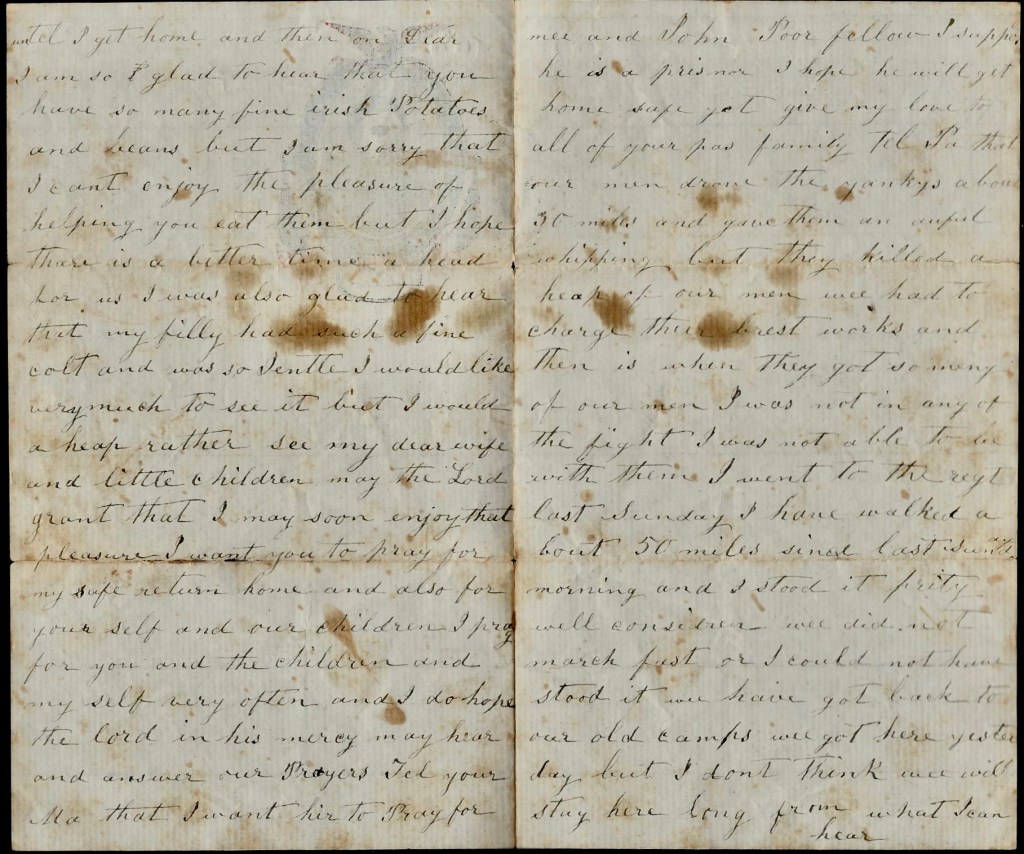 until I get home and then on Dear
I am so glad to hear that you
have so many fine irish Potatoes
and beans but I am sorry that
I cant enjoy the pleasure of
helping you eat them but I hope
thare is a better time a head
for us I was also glad to hear
that my filly had such a fine
colt and was so Jentle I would like
very much to see it but I would
a heap rather see my dear wife
and little children may the Lord
grant that I may soon enjoy that
pleasure I want you to pray for
my safe return home and also for
your self and our children I pray
for you and the children and
my self very often and I do hope
the lord in his mercy may hear
and answer our Prayers Tel your
Ma that I want hir to Pray for
mee and John Poor fellow I suppo
he is a prisnor I hope he will get
home safe yet give my love to
all of your pas family tel Pa that
our men drove the yankys about
30 miles and gave them an awful
whipping but they killed a
heap of our men wee had to
charge their brest works and
then is when they got so meny
of our men I was not in any of
the fight I was not able to be
with them I went to the regt
last Sunday I have walked a
bout 50 miles since last Sunday
morning and I stood it prity
well considren wee did not
march fast or I could not have
stood it wee have got back to
our old camps wee got here yester
day but I dont think wee will
stay here long from what I can
hear